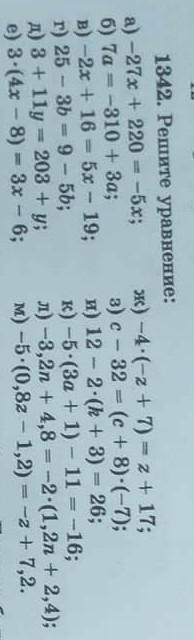 1342. Решите уравнение:
а) −27x + 220 = −5x;
б) 7a = −310 + 3a;
в) −2x + 16 = 5x − 19;
г) 25 − 3b = 9 − 5b;
д) 3 + 11y = 203 + y;
е) 3·(4x − 8) = 3x − 6;
ж) −4·(−z + 7) = z + 17;
з) c − 32 = (c + 8)·(−7);
и) 12 − 2·(k + 3) = 26;
к) −5·(3a + 1) − 11 = −16;
л) −3,2n + 4,8 = −2·(1,2n + 2,4);
м) −5·(0,8z − 1,2) = −z + 7,2.